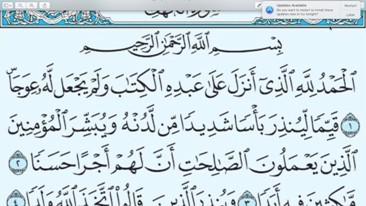 Updates Available
Do you want to restart to install these
updates now or try tonight?
Restart
Later
بِسْمِ ٱللَّهِ ٱلرَّحْمَٰنِ ٱلرَّحِيمِ
ٱلْحَمْدُ لِلَّهِ ٱلَّذِىٓ أَنزَلَ عَلَىٰ عَبْدِهِ ٱلْكِتَٰبَ وَلَمْ يَجْعَل لَّهُۥ عِوَجَاۜ
١ قَيِّمًا لِّيُنذِرَ بَأْسًا شَدِيدًا مِّن لَّدُنْهُ وَيُبَشِّرَ ٱلْمُؤْمِنِينَ
ٱلَّذِينَ يَعْمَلُونَ ٱلصَّٰلِحَٰتِ أَنَّ لَهُمْ أَجْرًا حَسَنًا ٢
مَّٰكِثِينَ فِيهِ أَبَدًا ٣ وَيُنذِرَ ٱلَّذِينَ قَالُوا۟ ٱتَّخَذَ ٱللَّهُ وَلَدًا ٤